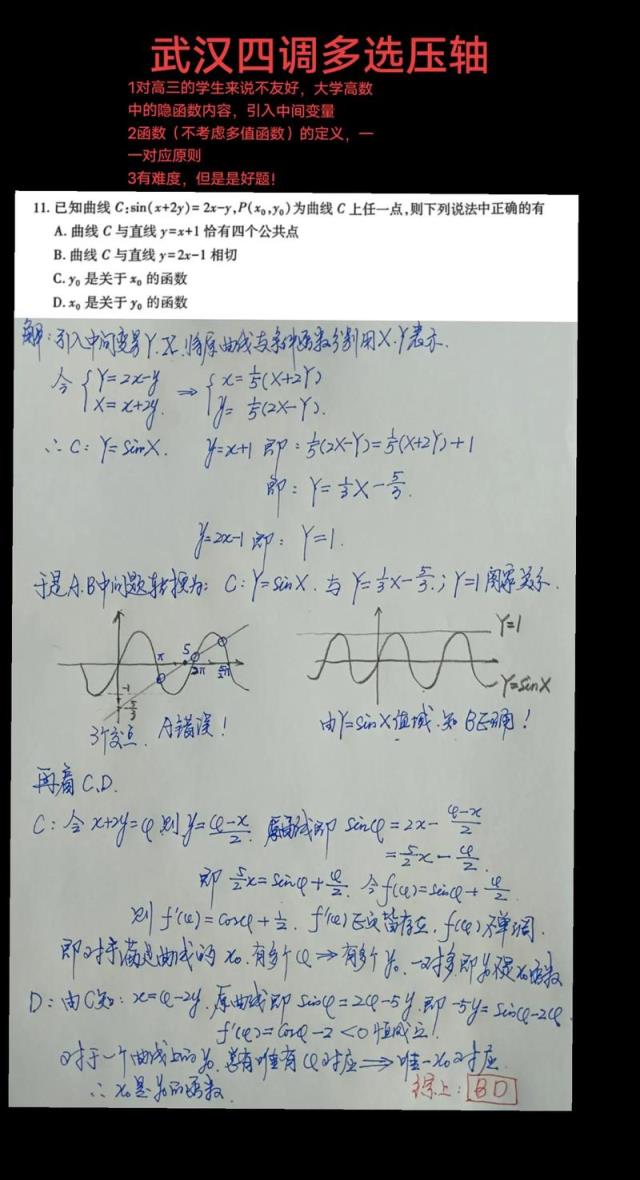 武汉四调多选压轴
1对高三的学生来说不友好，大学高数
中的隐函数内容，引入中间变量
2函数（不考虑多值函数）的定义，一
一对应原则
3有难度，但是是好题！
11. 已知曲线 C:sin(x+2y)= 2x-y,P(x₀,y₀)为曲线 C 上任一点,则下列说法中正确的有
A. 曲线 C 与直线 y=x+1 恰有四个公共点
B. 曲线 C 与直线 y=2x-1 相切
C. y₀ 是关于 x₀ 的函数
D. x₀ 是关于 y₀ 的函数
解:引入中间变量Y、X. 将原曲线与条件函数分别用X、Y表示.
令 { Y=2x-y ⇒ { x=1/5(X+2Y)
X=x+2y. y=1/5(2X-Y).
∴ C: Y=sinX. y=x+1 即: 1/5(2X-Y)=1/5(X+2Y)+1
即: Y=1/3X-5/3.
y=2x-1 即: Y=1.
于是A.B中问题转换为: C:Y=sinX. 与 Y=1/3X-5/3.; Y=1 关系.
π 5 2π 5/2π
-1
-5/3
Y=1
Y=sinX
3个交点. A错误!
由Y=sinX值域.知 B正确!
再看C.D.
C: 令 x+2y=φ 则 y=(φ-x)/2. 原曲线即 sinφ=2x-(φ-x)/2
=5/2x-φ/2.
即 5/2x=sinφ+φ/2. 令f(φ)=sinφ+φ/2.
则 f'(φ)=cosφ+1/2. f'(φ)正负皆存在. f(φ)不单调.
即对于满足曲线的 x₀. 有多个φ ⇒ 有多个y₀. 一对多.即y₀不是x₀函数
D: 由C知: x=φ-2y. 原曲线即 sinφ=2φ-5y. 即 -5y=sinφ-2φ.
f'(φ)=cosφ-2<0 恒成立.
对于一个曲线上的y₀. 总有唯一φ对应 ⇒ 唯一x₀对应.
∴ x₀是y₀的函数.
综上: BD